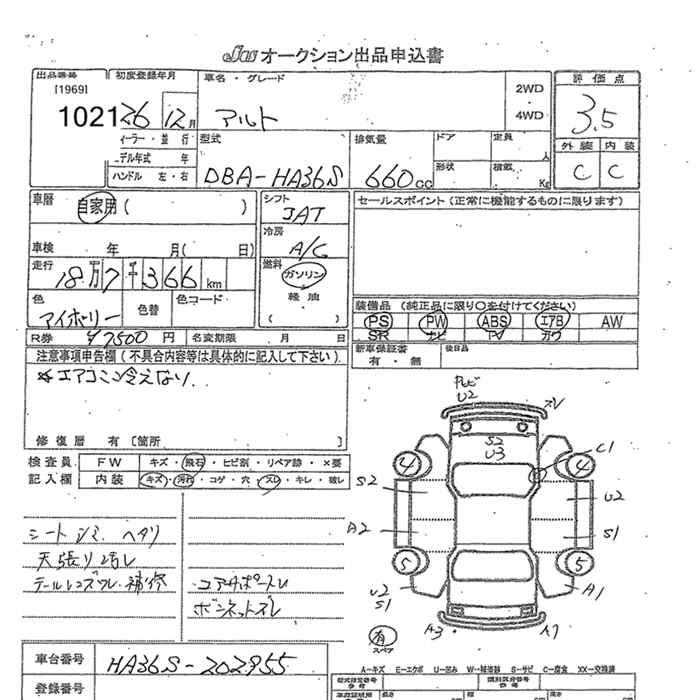 JUS オークション出品申込書
出品番号 初度登録年月 車名・グレード 評価点
[1969] 10211 26 12月 アルト 2WD・4WD 3.5
イヤー・並行 型式 排気量 ドア 定員 人 外装 内装
モデル年式 年 DBA-HA36S 660cc 形状 積載 Kg C C
ハンドル 左・右
車歴 自家用 ( ) シフト JAT セールスポイント (正常に機能するものに限ります)
冷房 A/C
車検 年 月( 日)
走行 18万7千366km 燃料 ガソリン
軽油
( )
色 アイボリー 色替 色コード 装備品 (純正品に限り○を付けてください)
PS PW ABS エアB AW
SR ナビ TV カワ
R券 ¥7500 円 名変期限 月 日 新車保証書 有・無 後日品
注意事項申告欄 (不具合内容等は具体的に記入して下さい)
※エアコン冷えなり.
修復歴 有 [箇所 ]
検査員 FW キズ・飛石・ヒビ割・リペア跡・×要
記入欄 内装 キズ・汚れ・コゲ・穴・スレ・キレ・破レ
シートシミ ヘタリ
天張り汚レ
テールレンズワレ・補修 コアサポートレ
ボンネットズレ
U2 ズレ
S2 U3 C1
4 4
S2 U2
A2 S1
5 5
U2 S1 A1
A3 A1
有 スペア
車台番号 HA36S-202955
A-キズ E-エクボ U-凹み W-補修跡 S-サビ C-腐食 XX-交換済
登録番号